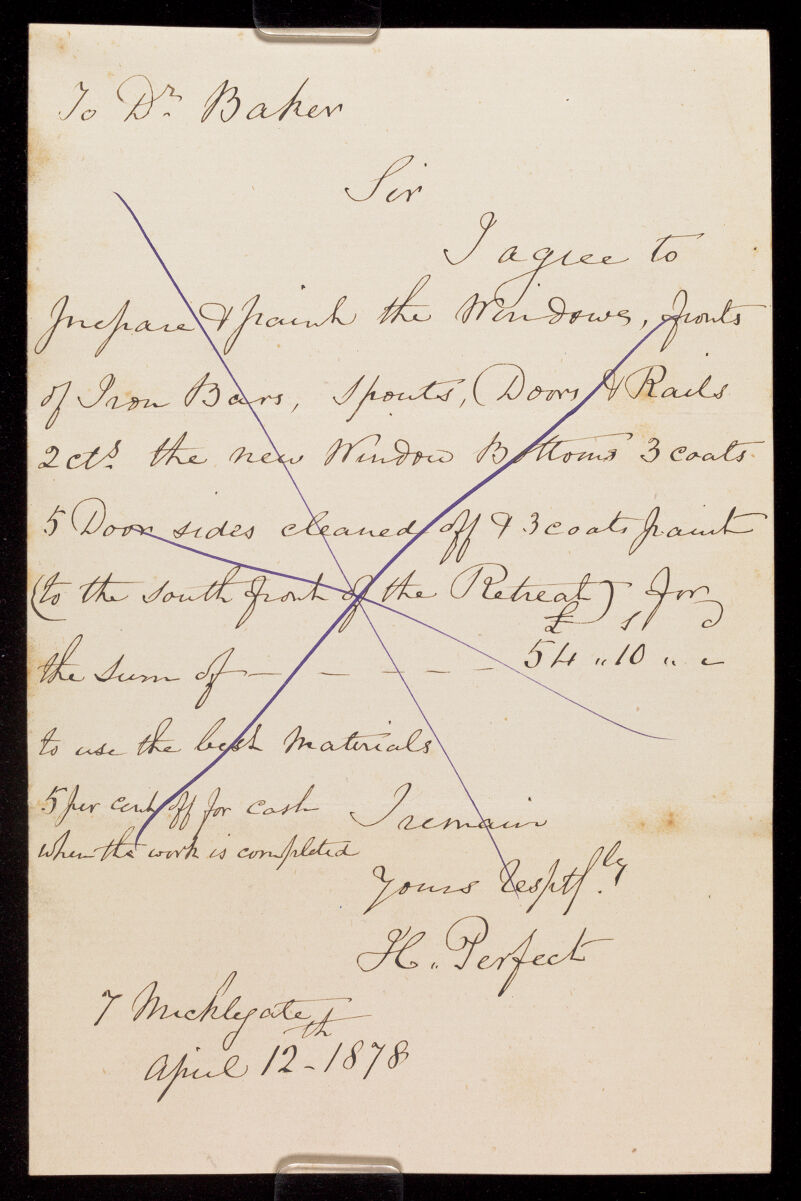 To Dr. Baker
Sir
I agree to
prepare & paint the Windows, fronts
of Iron Bars, Spouts, Doors & Rails
2 cts. the new Window Bottoms 3 coats
5 Door sides cleaned off & 3 coats paint
(to the south front of the Retreat) for
£ s d
the sum of - - - - - 54 " 10 " -
to use the best Materials
5 per cent off for cash
when the work is completed
I remain
Yours Resptf.ly
H. Perfect
7 Micklegate
April 12th - 1878